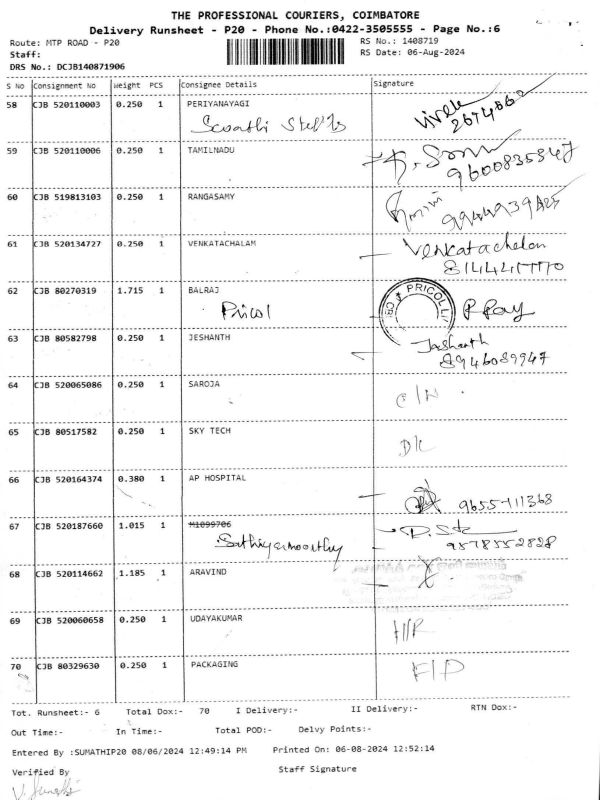 THE PROFESSIONAL COURIERS, COIMBATORE
Delivery Runsheet - P20 - Phone No.:0422-3505555 - Page No.:6
Route: MTP ROAD - P20 RS No.: 1408719
Staff: RS Date: 06-Aug-2024
DRS No.: DCJB140871906
S No Consignment No Weight PCS Consignee Details Signature
58 CJB 520110003 0.250 1 PERIYANAYAGI
59 CJB 520110006 0.250 1 TAMILNADU
9600835347
60 CJB 519813103 0.250 1 RANGASAMY
61 CJB 520134727 0.250 1 VENKATACHALAM Venkatachalam
62 CJB 80270319 1.715 1 BALRAJ
Pricol PRICOL
63 CJB 80582798 0.250 1 JESHANTH Jashanth
8946089947
64 CJB 520065086 0.250 1 SAROJA C/N
65 CJB 80517582 0.250 1 SKY TECH D/L
66 CJB 520164374 0.380 1 AP HOSPITAL
9655711368
67 CJB 520187660 1.015 1 M1099706
Sathiyamoorthy 9578552828
68 CJB 520114662 1.185 1 ARAVIND
69 CJB 520060658 0.250 1 UDAYAKUMAR
70 CJB 80329630 0.250 1 PACKAGING F/D
Tot. Runsheet:- 6 Total Dox:- 70 I Delivery:- II Delivery:- RTN Dox:-
Out Time:- In Time:- Total POD:- Delvy Points:-
Entered By :SUMATHIP20 08/06/2024 12:49:14 PM Printed On: 06-08-2024 12:52:14
Verified By Staff Signature